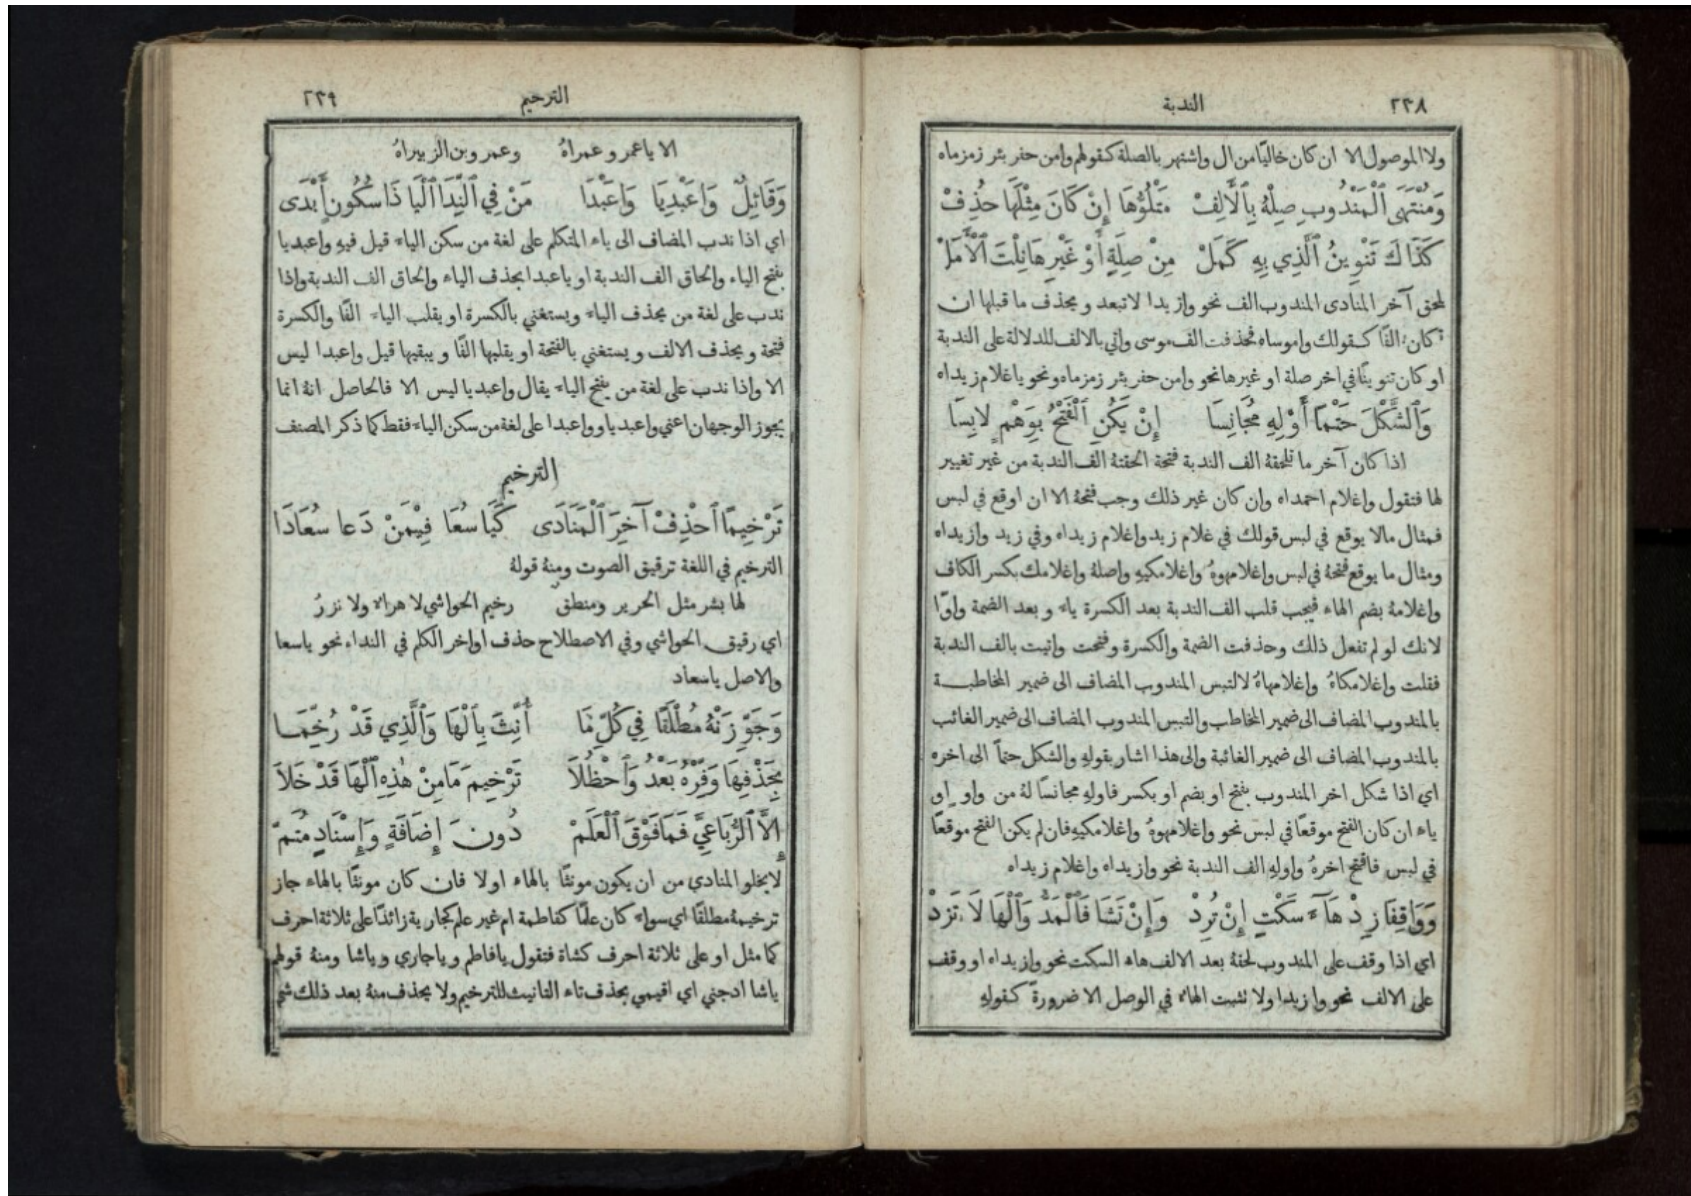 ٢٣٨ الندبة
ولا الموصول الا ان كان خاليًا من ال واشتهر بالصلة كقولهم وامن حفر بئر زمزماه
وَمُنْتَهَى ٱلْمَنْدُوبِ صِلْهُ بِٱلْأَلِفْ مَتْلُوُّهَا إِنْ كَانَ مِثْلَهَا حُذِفْ
كَذَاكَ تَنْوِينُ ٱلَّذِي بِهِ كَمَلْ مِنْ صِلَةٍ أَوْ غَيْرِهَا نِلْتَ ٱلْأَمَلْ
لحق آخر المنادى المندوب الف نحو وازيدا لا تبعد ويحذف ما قبلها ان
كان الفًا كقولك واموساه فحذفت الف موسى واتي بالالف للدلالة على الندبة
او كان تنوينًا في اخر صلة او غيرها نحو وامن حفر بئر زمزماه ونحو يا غلام زيداه
وَٱلشَّكْلَ حَتْمًا أَوْلِهِ مُجَانِسَا إِنْ يَكُنِ ٱلْفَتْحُ بِوَهْمٍ لَابِسَا
اذا كان آخر ما تلحقهُ الف الندبة فتحة الحقتهُ الف الندبة من غير تغيير
لها فتقول واغلام احمداه وان كان غير ذلك وجب فتحهُ الا ان اوقع في لبس
فمثال مالا يوقع في لبس قولك في غلام زيد واغلام زيداه وفي زيد وازيداه
ومثال ما يوقع فتحهُ في لبس واغلامهوهُ واغلامكيهِ واصلهُ واغلامك بكسر الكاف
واغلامهُ بضم الهاء فيجب قلب الف الندبة بعد الكسرة ياء وبعد الضمة واوًا
لانك لو لم تفعل ذلك وحذفت الضمة والكسرة وفتحت واتيت بالف الندبة
فقلت واغلامكاهُ واغلامهاهُ لالتبس المندوب المضاف الى ضمير المخاطبة
بالمندوب المضاف الى ضمير المخاطب والتبس المندوب المضاف الى ضمير الغائب
بالمندوب المضاف الى ضمير الغائبة والى هذا اشار بقولهِ والشكل حتماً الى اخره
اي اذا شكل اخر المندوب بفتح او بضم او بكسر فاولهِ مجانسًا لهُ من واو او
ياء ان كان الفتح موقعًا في لبس نحو واغلامهوهُ واغلامكيهِ فان لم يكن الفتح موقعًا
في لبس فافتح اخرهُ واولهِ الف الندبة نحو وازيداه واغلام زيداه
وَوَاقِفًا زِدْ هَآءَ سَكْتٍ إِنْ تُرِدْ وَإِنْ تَشَا فَٱلْمَدَّ وَٱلْهَا لَا تَزِدْ
اي اذا وقف على المندوب لحقهُ بعد الالف هاء السكت نحو وازيداه او وقف
على الالف نحو وازيدا ولا تثبت الهاء في الوصل الا ضرورة كقولهِ
الترخيم ٢٣٩
الا يا عمرو عمراهُ وعمرو بن الزبيراهُ
وَقَائِلٌ وَاعَبْدِيَا وَاعَبْدَا مَنْ فِي ٱلنِّدَا ٱلْيَا ذَا سُكُونٍ أَبْدَى
اي اذا ندب المضاف الى ياء المتكلم على لغة من سكن الياء قيل فيهِ واعبديا
بفتح الياء والحاق الف الندبة او يا عبدا بحذف الياء والحاق الف الندبة واذا
ندب على لغة من يحذف الياء ويستغني بالكسرة او يقلب الياء الفًا والكسرة
فتحة ويحذف الالف ويستغني بالفتحة او يقلبها الفًا ويبقيها قيل واعبدا ليس
الا واذا ندب على لغة من يفتح الياء يقال واعبديا ليس الا فالحاصل انهُ انما
يجوز الوجهان اعني واعبديا وواعبدا على لغة من سكن الياء فقط كما ذكر المصنف
الترخيم
تَرْخِيمًا ٱحْذِفْ آخِرَ ٱلْمُنَادَى كَيَا سُعَا فِيْمَنْ دَعَا سُعَادَا
الترخيم في اللغة ترقيق الصوت ومنهُ قولهُ
لها بشر مثل الحرير ومنطق رخيم الحواشي لا هراء ولا نزرُ
اي رقيق الحواشي وفي الاصطلاح حذف اواخر الكلم في النداء نحو يا سعا
والاصل يا سعاد
وَجَوِّزَنْهُ مُطْلَقًا فِي كُلِّ مَا أُنِّثَ بِٱلْهَا وَٱلَّذِي قَدْ رُخِّمَا
بِحَذْفِهَا وَفِّرْهُ بَعْدُ وَٱحْظُلَا تَرْخِيمَ مَا مِنْ هٰذِهِ ٱلْهَا قَدْ خَلَا
إِلَّا ٱلرُّبَاعِيَّ فَمَا فَوْقَ ٱلْعَلَمْ دُونَ إِضَافَةٍ وَإِسْنَادٍ مُتَمّ
لا يخلو المنادى من ان يكون مونثًا بالهاء اولا فان كان مونثًا بالهاء جاز
ترخيمهُ مطلقًا اي سواء كان علمًا كفاطمة ام غير علم كجارية زائدًا على ثلاثة احرف
كما مثل او على ثلاثة احرف كشاة فتقول يا فاطم ويا جاري ويا شا ومنهُ قولهم
يا شا ادجني اي اقيمي بحذف تاء التانيث للترخيم ولا يحذف منهُ بعد ذلك شي